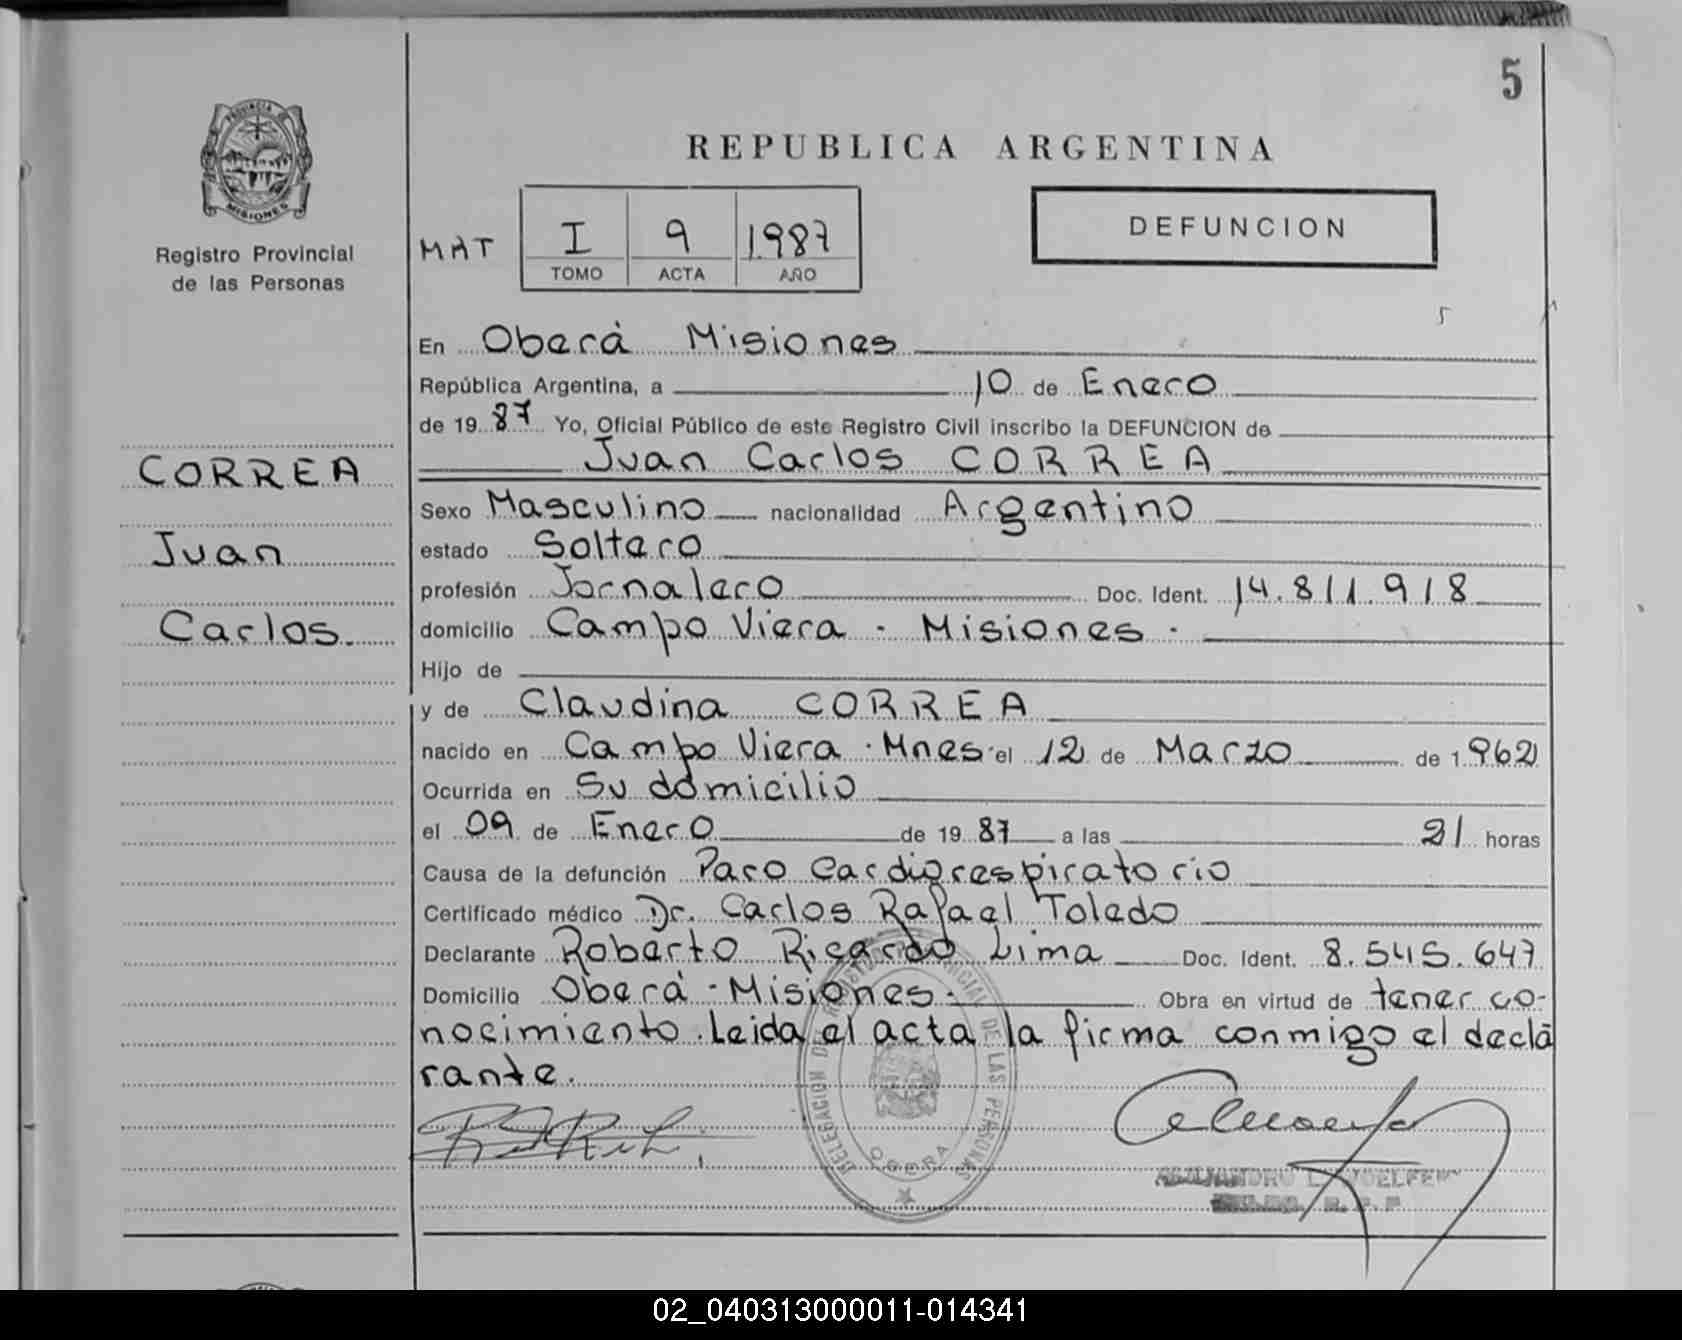 5
PROVINCIA DE
MISIONES
Registro Provincial
de las Personas
REPUBLICA ARGENTINA
MAT I 9 1987
TOMO ACTA AÑO
DEFUNCION
5
CORREA
Juan
Carlos.
En Oberá Misiones
República Argentina, a 10 de Enero
de 1987 Yo, Oficial Público de este Registro Civil inscribo la DEFUNCION de
Juan Carlos CORREA
Sexo Masculino nacionalidad Argentino
estado Soltero
profesión Jornalero Doc. Ident. 14.811.918
domicilio Campo Viera - Misiones -
Hijo de
y de Claudina CORREA
nacido en Campo Viera - Mnes - el 12 de Marzo de 1962
Ocurrida en Su domicilio
el 09 de Enero de 1987 a las 21 horas
Causa de la defunción Paro Cardiorespiratorio
Certificado médico Dr. Carlos Rafael Toledo
Declarante Roberto Ricardo Lima Doc. Ident. 8.545.647
Domicilio Oberá - Misiones - Obra en virtud de tener co-
nocimiento. Leida el acta la firma conmigo el decla
rante.
DE LAS PERSONAS
OBERA
02_040313000011-014341